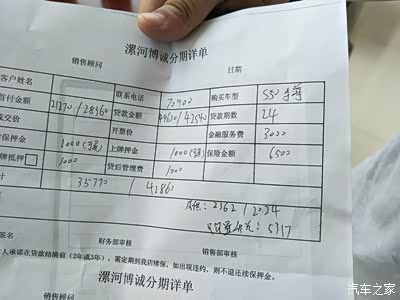 漯河博诚分期详单
销售顾问 日期
客户姓名 联系电话 70900 购买车型 S50
首付金额 21270/28360 贷款金额 49630/42540 贷款期数 24
成交价 开票价 金融服务费 3000
保押金 3000 上牌押金 1000 保险金额 6500
牌抵押□ 1000 贷后管理费 1000
计 35770 / 42860
月供: 2362/2024
5317
签名 财务部审核 销售部审核
本人承诺在贷款结清前(2年或3年),需定期到我店续保,如出现违约,则不退还续保押金。
漯河博诚分期详单
销售顾问 日期
汽车之家